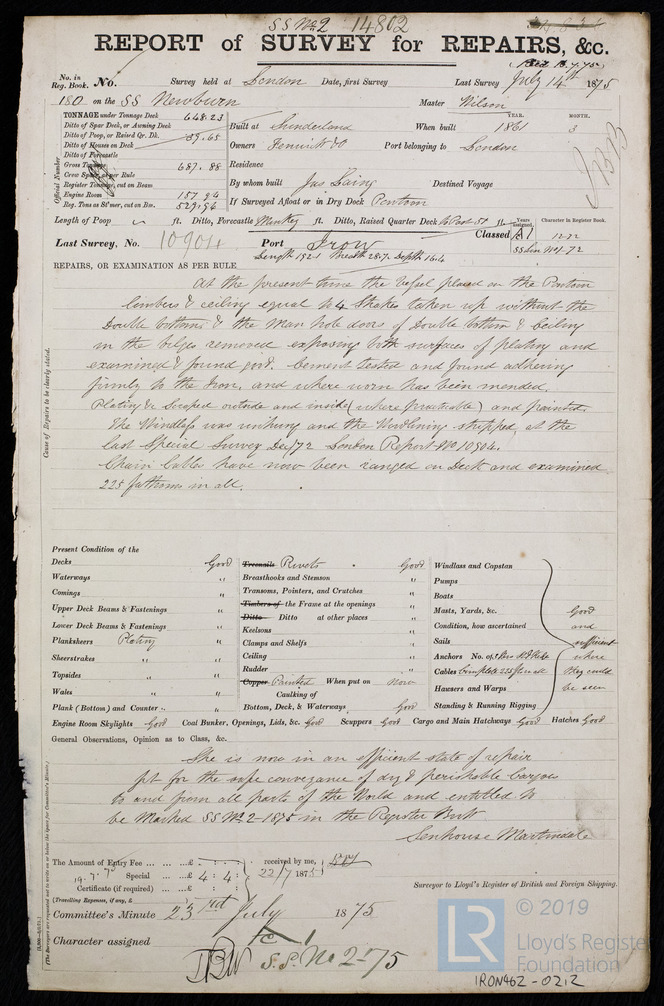 SS No 2 14802
REPORT of SURVEY for REPAIRS, &c.
No. in Reg. Book. No. Survey held at London Date, first Survey Last Survey July 14th 1875
180 on the SS Newburn Master Wilson
TONNAGE under Tonnage Deck 648.23
Ditto of Spar Deck, or Awning Deck
Ditto of Poop, or Raised Qr. Dk. 39.65
Ditto of Houses on Deck
Ditto of Forecastle
Gross Tonnage 687.88
Crew Space, as per Rule
Register Tonnage, cut on Beam
Engine Room 157.94
Reg. Tons as St'mer, cut on Bm. 529.94
Official Number
Built at Sunderland When built 1861 3
YEAR. MONTH.
Owners Fenwick & Co Port belonging to London
Residence
By whom built Jas Laing Destined Voyage
If Surveyed Afloat or in Dry Dock Pontoon
Length of Poop ft. Ditto, Forecastle Monkey ft. Ditto, Raised Quarter Deck & Poop 51 ft.
Years assigned. Character in Register Book.
Last Survey, No. 10904 Port Iron Classed A1 12.72
SS Lon No1-72
Length 192.1 Breadth 28.7 Depth 16.4
REPAIRS, OR EXAMINATION AS PER RULE
At the present time the vessel placed on the Pontoon
limbers & ceiling equal to 4 Strakes taken up without the
Double bottoms & the Man hole doors of Double bottom & Ceiling
in the bilges removed exposing both surfaces of plating and
examined & found good. Cement tested and found adhering
firmly to the Iron, and where worn has been mended.
Plating &c Scraped outside and inside (where practicable) and painted.
The Windlass was unhung and the Windlass shipped, at the
last Special Survey Dec/72 London Report No 10904.
Chain Cables have now been ranged on Deck and examined
225 fathoms in all.
Cause of Repairs to be clearly stated.
Present Condition of the
Decks Good
Waterways "
Comings "
Upper Deck Beams & Fastenings "
Lower Deck Beams & Fastenings "
Planksheers Plating "
Sheerstrakes " "
Topsides " "
Wales " "
Plank (Bottom) and Counter "
Treenails Rivets Good
Breasthooks and Stemson "
Transoms, Pointers, and Crutches "
Timbers of the Frame at the openings "
Ditto Ditto at other places "
Keelsons "
Clamps and Shelfs "
Ceiling "
Rudder "
Copper Painted When put on now
Caulking of
Bottom, Deck, & Waterways Good
Windlass and Capstan
Pumps
Boats
Masts, Yards, &c.
Condition, how ascertained
Sails
Anchors No. of
Cables Complete 225 fms all
Hawsers and Warps
Standing & Running Rigging
Good
and
sufficient
where
they could
be seen
Engine Room Skylights Good Coal Bunker, Openings, Lids, &c. Good Scuppers Good Cargo and Main Hatchways Good Hatches Good
General Observations, Opinion as to Class, &c.
She is now in an efficient state of repair
fit for the safe conveyance of dry & perishable cargoes
to and from all parts of the World and entitled to
be Marked SS No 2-1875 in the Register Book
Senhouse Martindale
The Amount of Entry Fee ... ... ...£ : : received by me,
Special ... ...£ 4 : 4 : 22/7 1875
Certificate (if required) ... ...£ : :
(Travelling Expenses, if any, £ )
Surveyor to Lloyd's Register of British and Foreign Shipping.
Committee's Minute 23rd July 1875
Character assigned A 1
S.S. No 2-75
LR © 2019
Lloyd's Register
Foundation
IRON462-0212